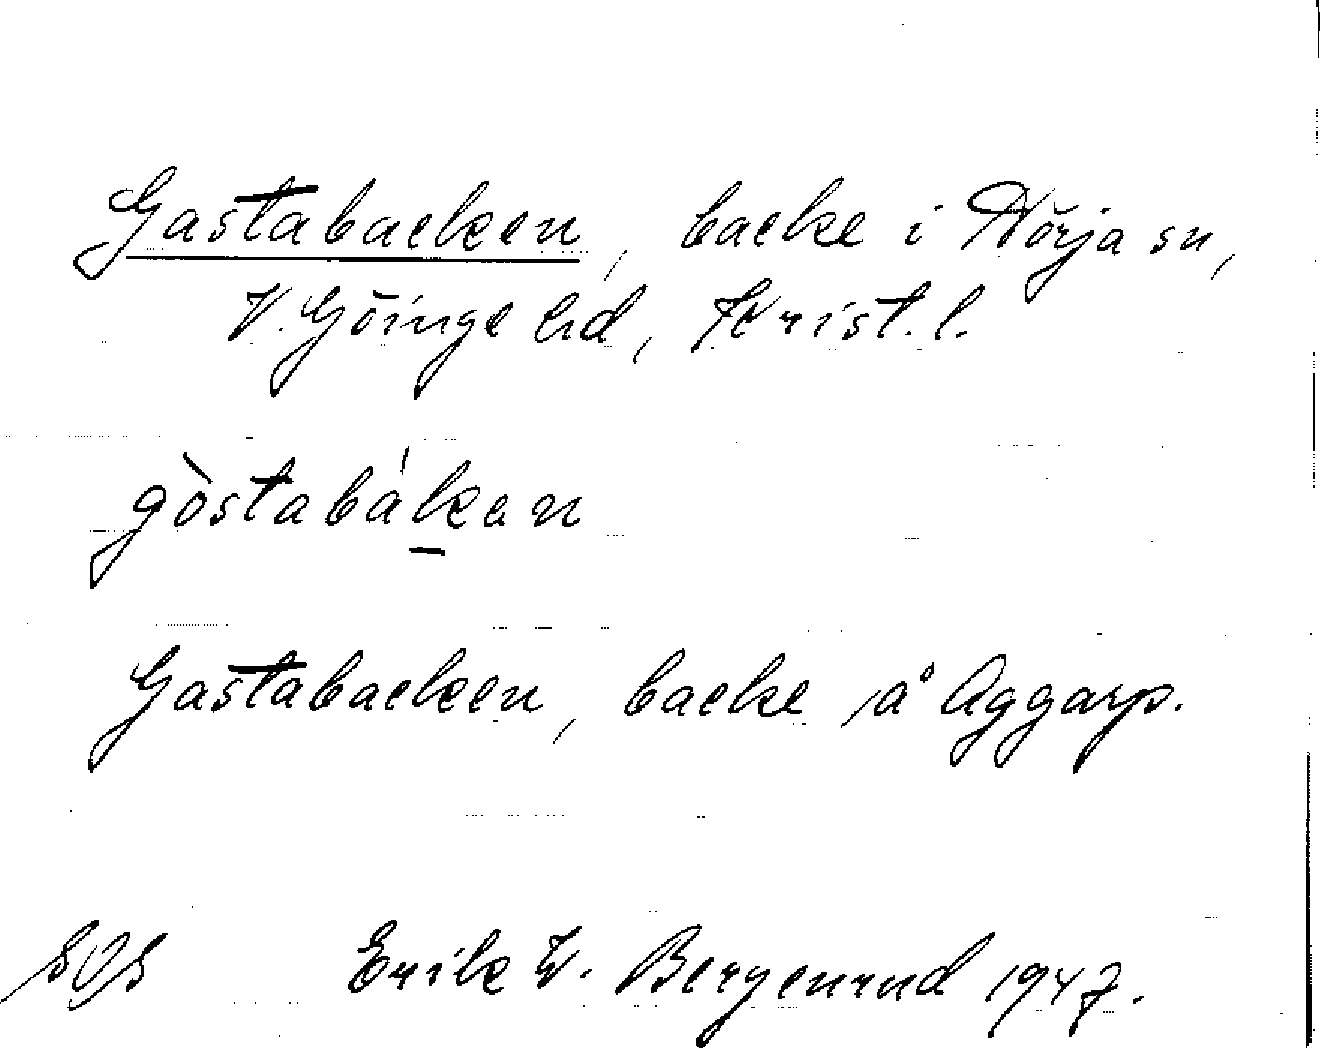 Gastabacken, backe i Nörja sn,
V. Göinge hd, Krist. l.
gòstabákan
Gastabacken, backe på Aggarp.
Erik W. Bergenrud 1947.